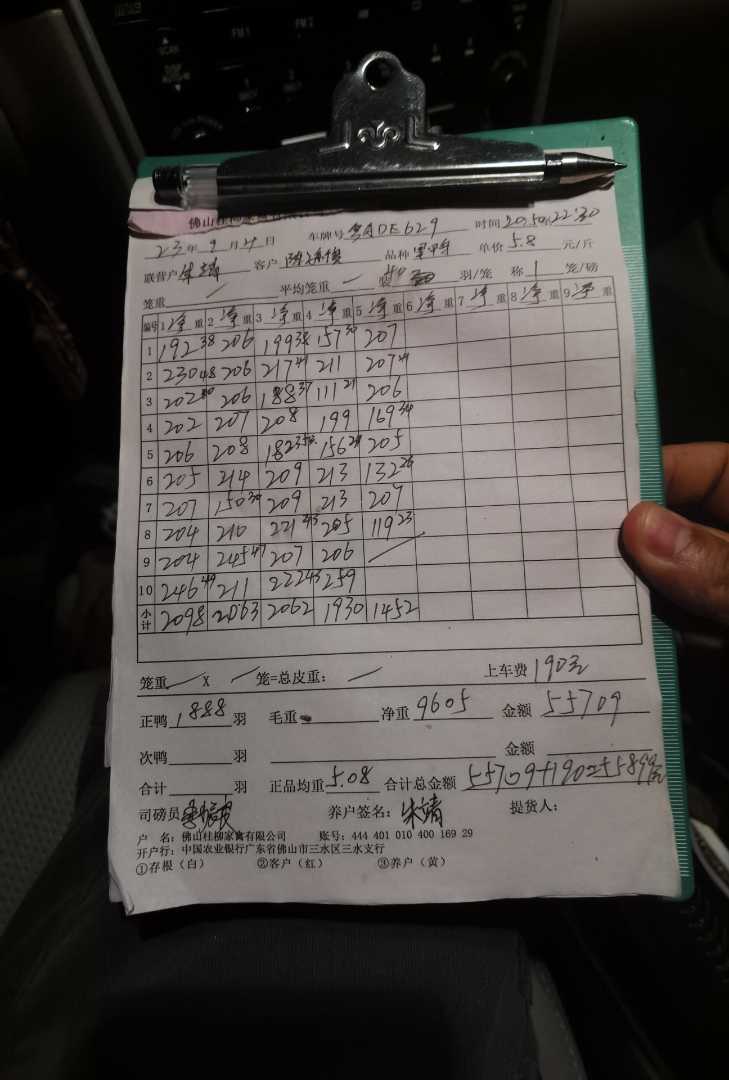 佛山桂柳家禽
23年9月21日 车牌号 粤ADE629 时间 20:50，22:30
联营户 朱靖 客户 品种 单价 5.8 元/斤
笼重 平均笼重 装 羽/笼 称 1 笼/磅
编号 1 净重 2 净重 3 净重 4 净重 5 净重 6 净重 7 净重 8 净重 9 净重
1 192 38 206 199 38 157 30 207
2 230 48 206 217 41 211 207 41
3 202 40 206 188 37 111 21 206
4 202 207 208 199 169 34
5 206 208 182 35 156 29 205
6 205 214 209 213 132 26
7 207 150 30 209 213 207
8 204 210 221 43 205 119 23
9 204 245 47 207 206
10 246 49 211 222 43 259
小计 2098 2063 2062 1930 1452
笼重 X 笼=总皮重： 上车费 190元
正鸭 1888 羽 毛重 净重 9605 金额 55709
次鸭 羽 金额
合计 羽 正品均重 5.08 合计总金额 55709+190=55899元
司磅员 养户签名：朱靖 提货人：
户 名：佛山桂柳家禽有限公司 账号：444 401 010 400 169 29
开户行：中国农业银行广东省佛山市三水区三水支行
①存根（白） ②客户（红） ③养户（黄）